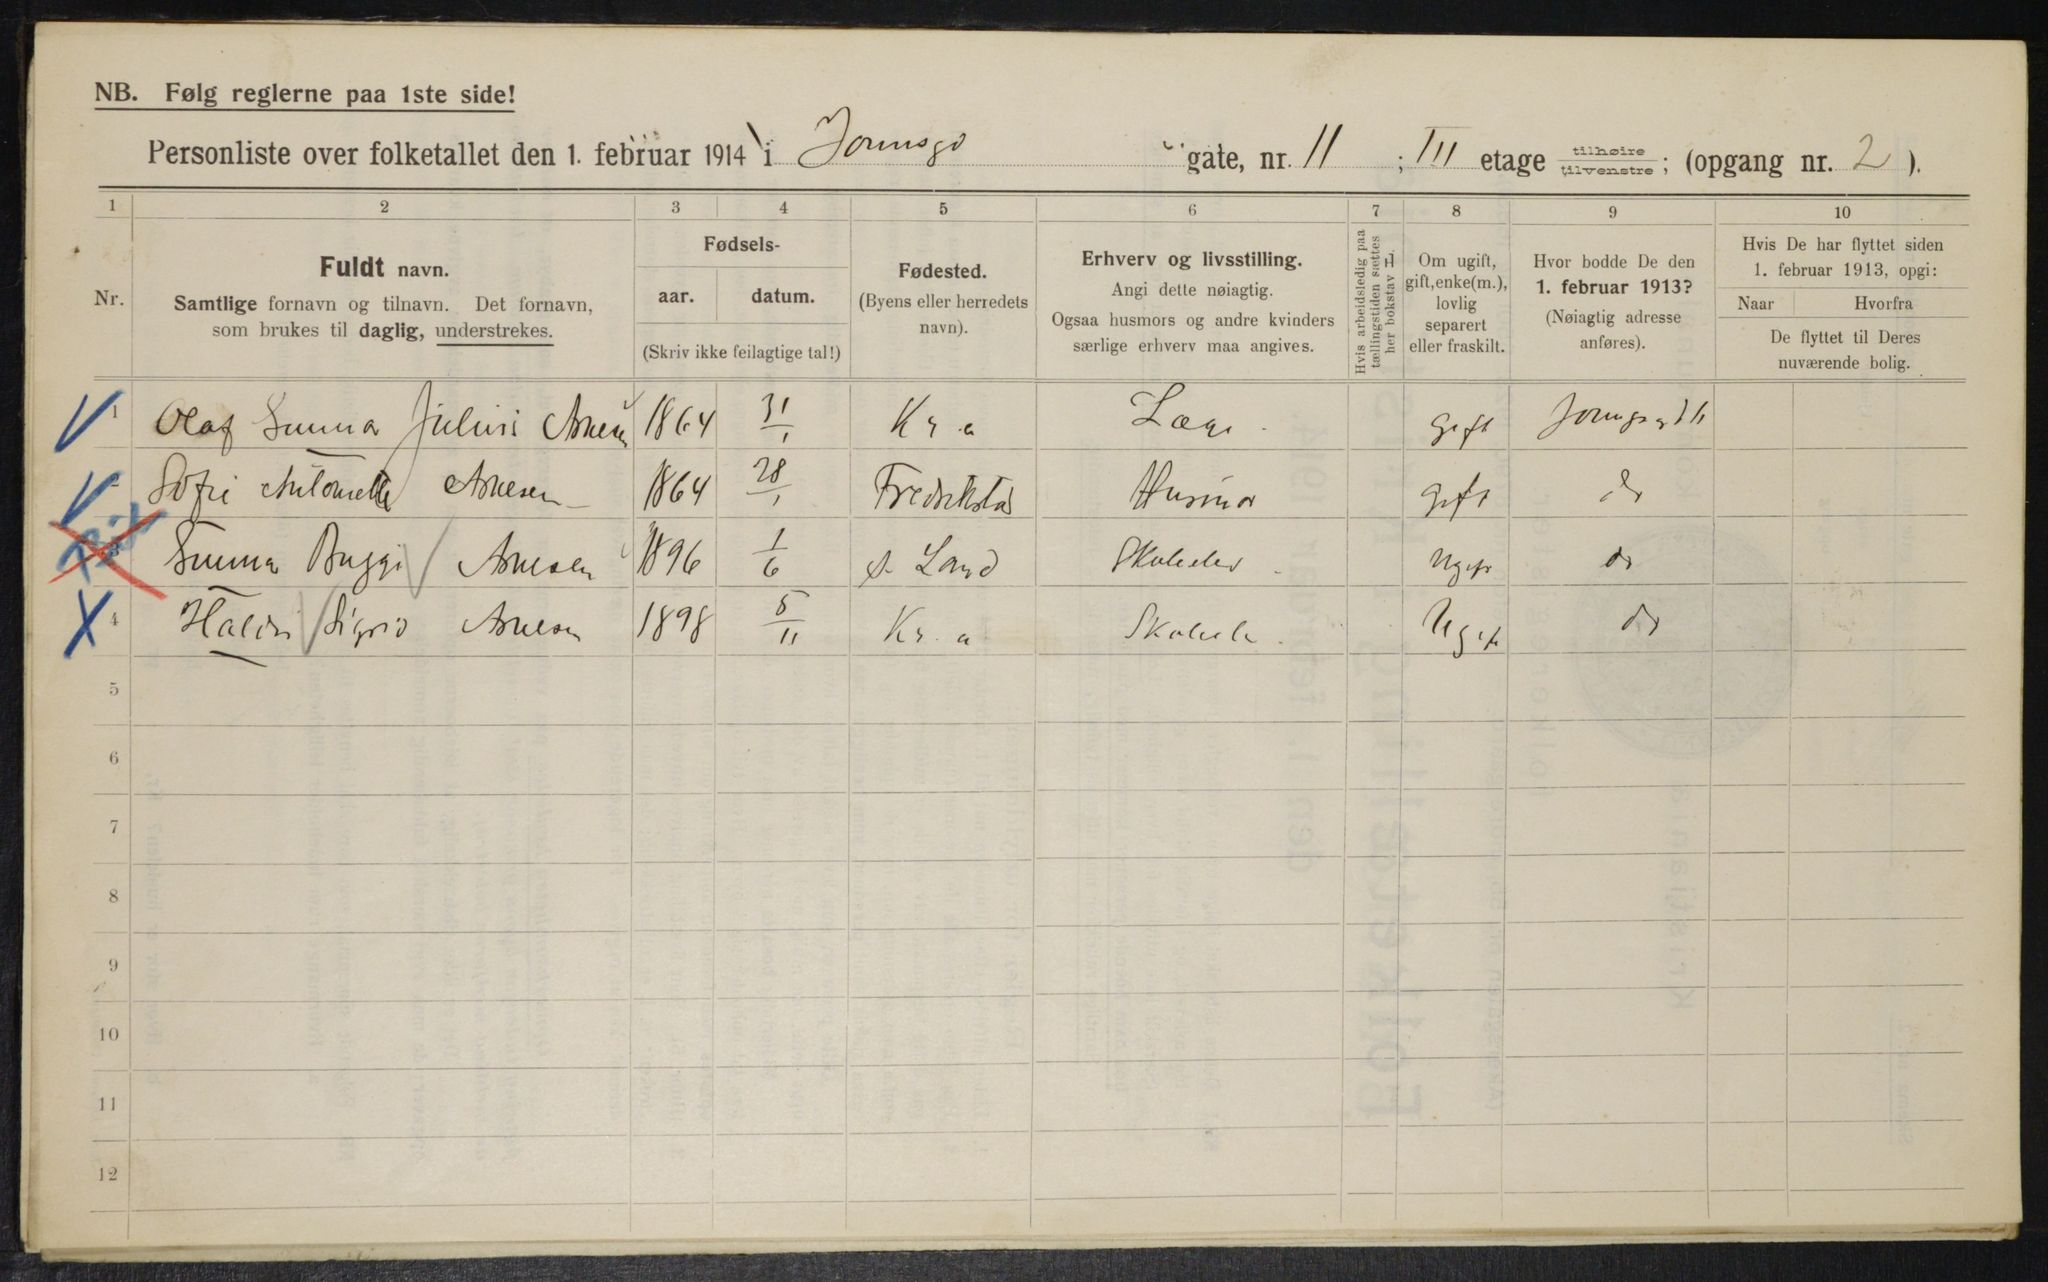 NB. Følg reglerne paa 1ste side!
Personliste over folketallet den 1. februar 1914 i Jernsgd gate, nr. 11; III etage tilhøire tilvenstre; (opgang nr. 2).
1 2 3 4 5 6 7 8 9 10
Nr.
Fuldt navn.
Samtlige fornavn og tilnavn. Det fornavn,
som brukes til daglig, understrekes.
Fødsels-
aar. datum.
(Skriv ikke feilagtige tal!)
Fødested.
(Byens eller herredets
navn).
Erhverv og livsstilling.
Angi dette nøiagtig.
Ogsaa husmors og andre kvinders
særlige erhverv maa angives.
Hvis arbeidsledig paa
tællingstiden sættes
her bokstav L.
Om ugift,
gift, enke(m.),
lovlig
separert
eller fraskilt.
Hvor bodde De den
1. februar 1913?
(Nøiagtig adresse
anføres).
Hvis De har flyttet siden
1. februar 1913, opgi:
Naar Hvorfra
De flyttet til Deres
nuværende bolig.
1 Olaf Julius Arnesen 1864 31/1 Kr.a Læge gift
2 Sofie Antonette Arnesen 1864 28/1 Fredrikstad Husmor gift do
3 Arnesen 1896 1/6 s. Land Skoleelev ugift do
4 Sigrid Arnesen 1898 5/11 Kr.a Skoleelev Ugift do
5
6
7
8
9
10
11
12